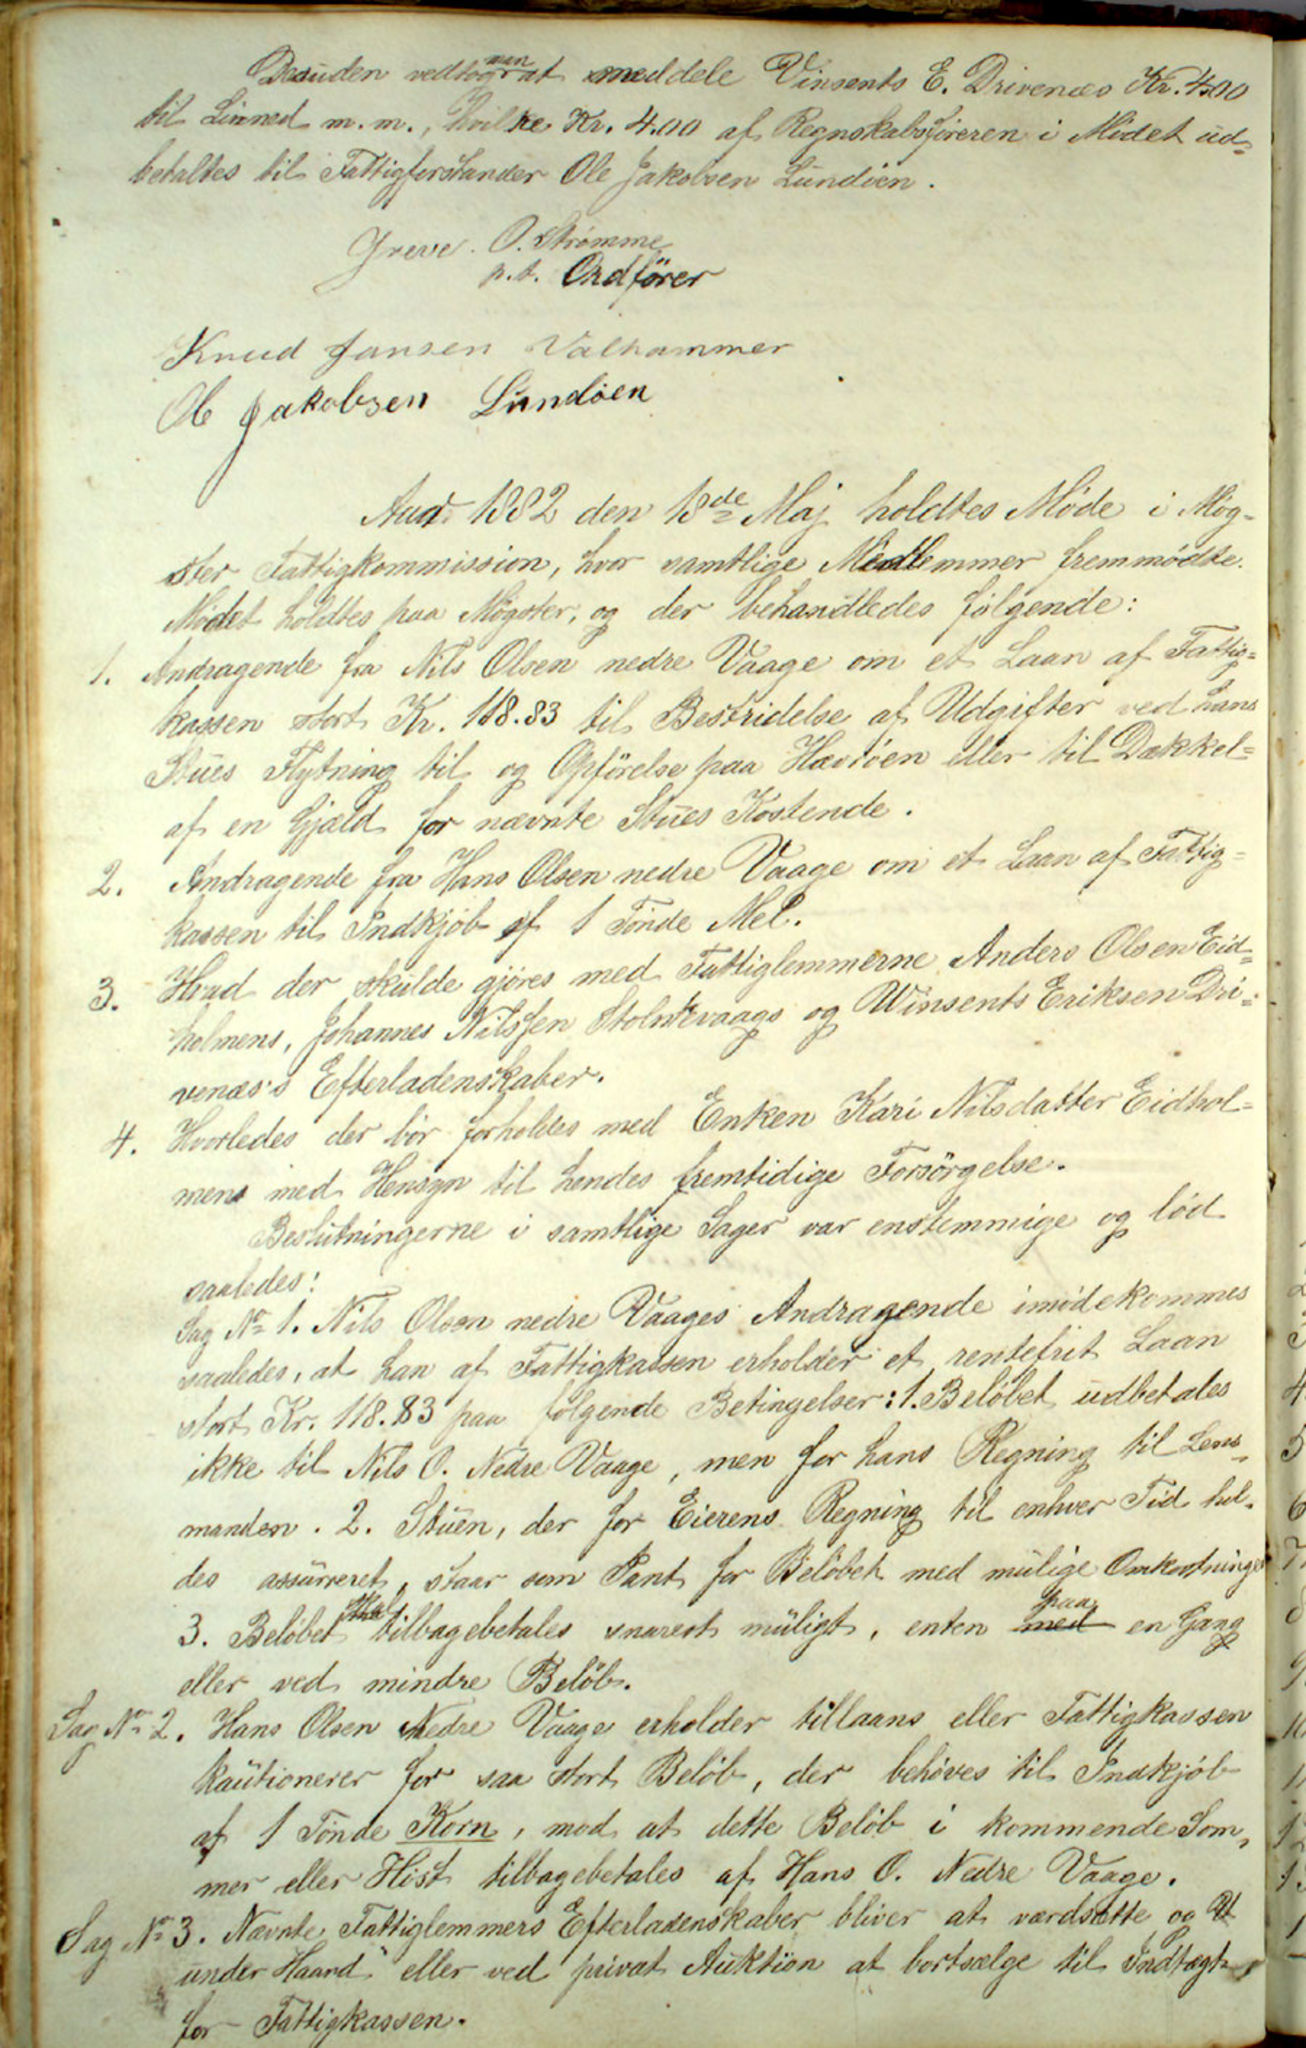 Desuden vedtog man at meddele Vinsents E. Drivenæs Kr. 4.00
til Linned m.m., hvilke Kr. 4.00 af Regnskabsføreren i Mødet ud-
betaltes til Fattigforstander Ole Jakobsen Lundøen.
Greve. O. Strømme
p.t. Ordfører
Knud Jansen Valhammer
Ole Jakobsen Lundøen
Aar 1882 den 18de Maj holdtes Møde i Møg-
ster Fattigkommission, hvor samtlige Medlemmer fremmødte.
Mødet holdtes paa Møgster, og der behandledes følgende:
1. Andragende fra Nils Olsen nedre Vaage om et Laan af Fattig-
kassen stort Kr. 118.83 til Bestridelse af Udgifter ved hans
Stues Flytning til og Opførelse paa Hævrøen eller til Dækkel-
af en Gjæld for nævnte Stues Kostende.
2. Andragende fra Hans Olsen nedre Vaage om et Laan af Fattig-
kassen til Indkjøb af 1 Tønde Mel.
3. Hvad der skulde gjøres med Fattiglemmerne Anders Olsen Eid-
holmens, Johannes Nilssen Stolmevaags og Winsents Eriksen Dri-
venæs's Efterladenskaber.
4. Hvorledes der bør forholdes med Enken Kari Nilsdatter Eidhol-
mens med Hensyn til hendes fremtidige Forsørgelse.
Beslutningerne i samtlige Sager var enstemmige og lød
saaledes:
Sag No 1. Nils Olsen nedre Vaages Andragende imødekommes
saaledes, at han af Fattigkassen erholder et rentefrit Laan
stort Kr. 118.83 paa følgende Betingelser: 1. Beløbet udbetales
ikke til Nils O. Nedre Vaage, men for hans Regning til Lens-
manden. 2. Stuen, der for Eierens Regning til enhver Tid hol-
des assureret, staar som Pant for Beløbet med mulige Omkostninger
3. Beløbet skal tilbagebetales snarest muligt, enten med paa en Gang
eller ved mindre Beløb.
Sag No 2. Hans Olsen Nedre Vaage erholder tillaans eller Fattigkassen
kautionerer for saa stort Beløb, der behøves til Indkjøb
af 1 Tønde Korn, mod at dette Beløb i kommende Som-
mer eller Høst tilbagebetales af Hans O. Nedre Vaage.
Sag No 3. Nævnte Fattiglemmers Efterladenskaber bliver at værdsætte og
under Haand eller ved privat Auktion at bortsælge til Indtægt
for Fattigkassen.